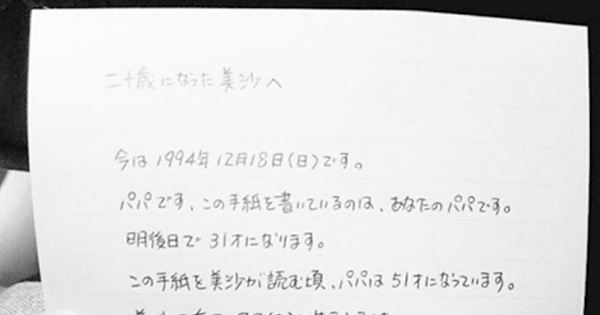 二十歳になった美沙へ
今は1994年12月18日(日)です。
パパです、この手紙を書いているのは、あなたのパパです。
明後日で31才になります。
この手紙を美沙が読む頃、パパは51才になっています。